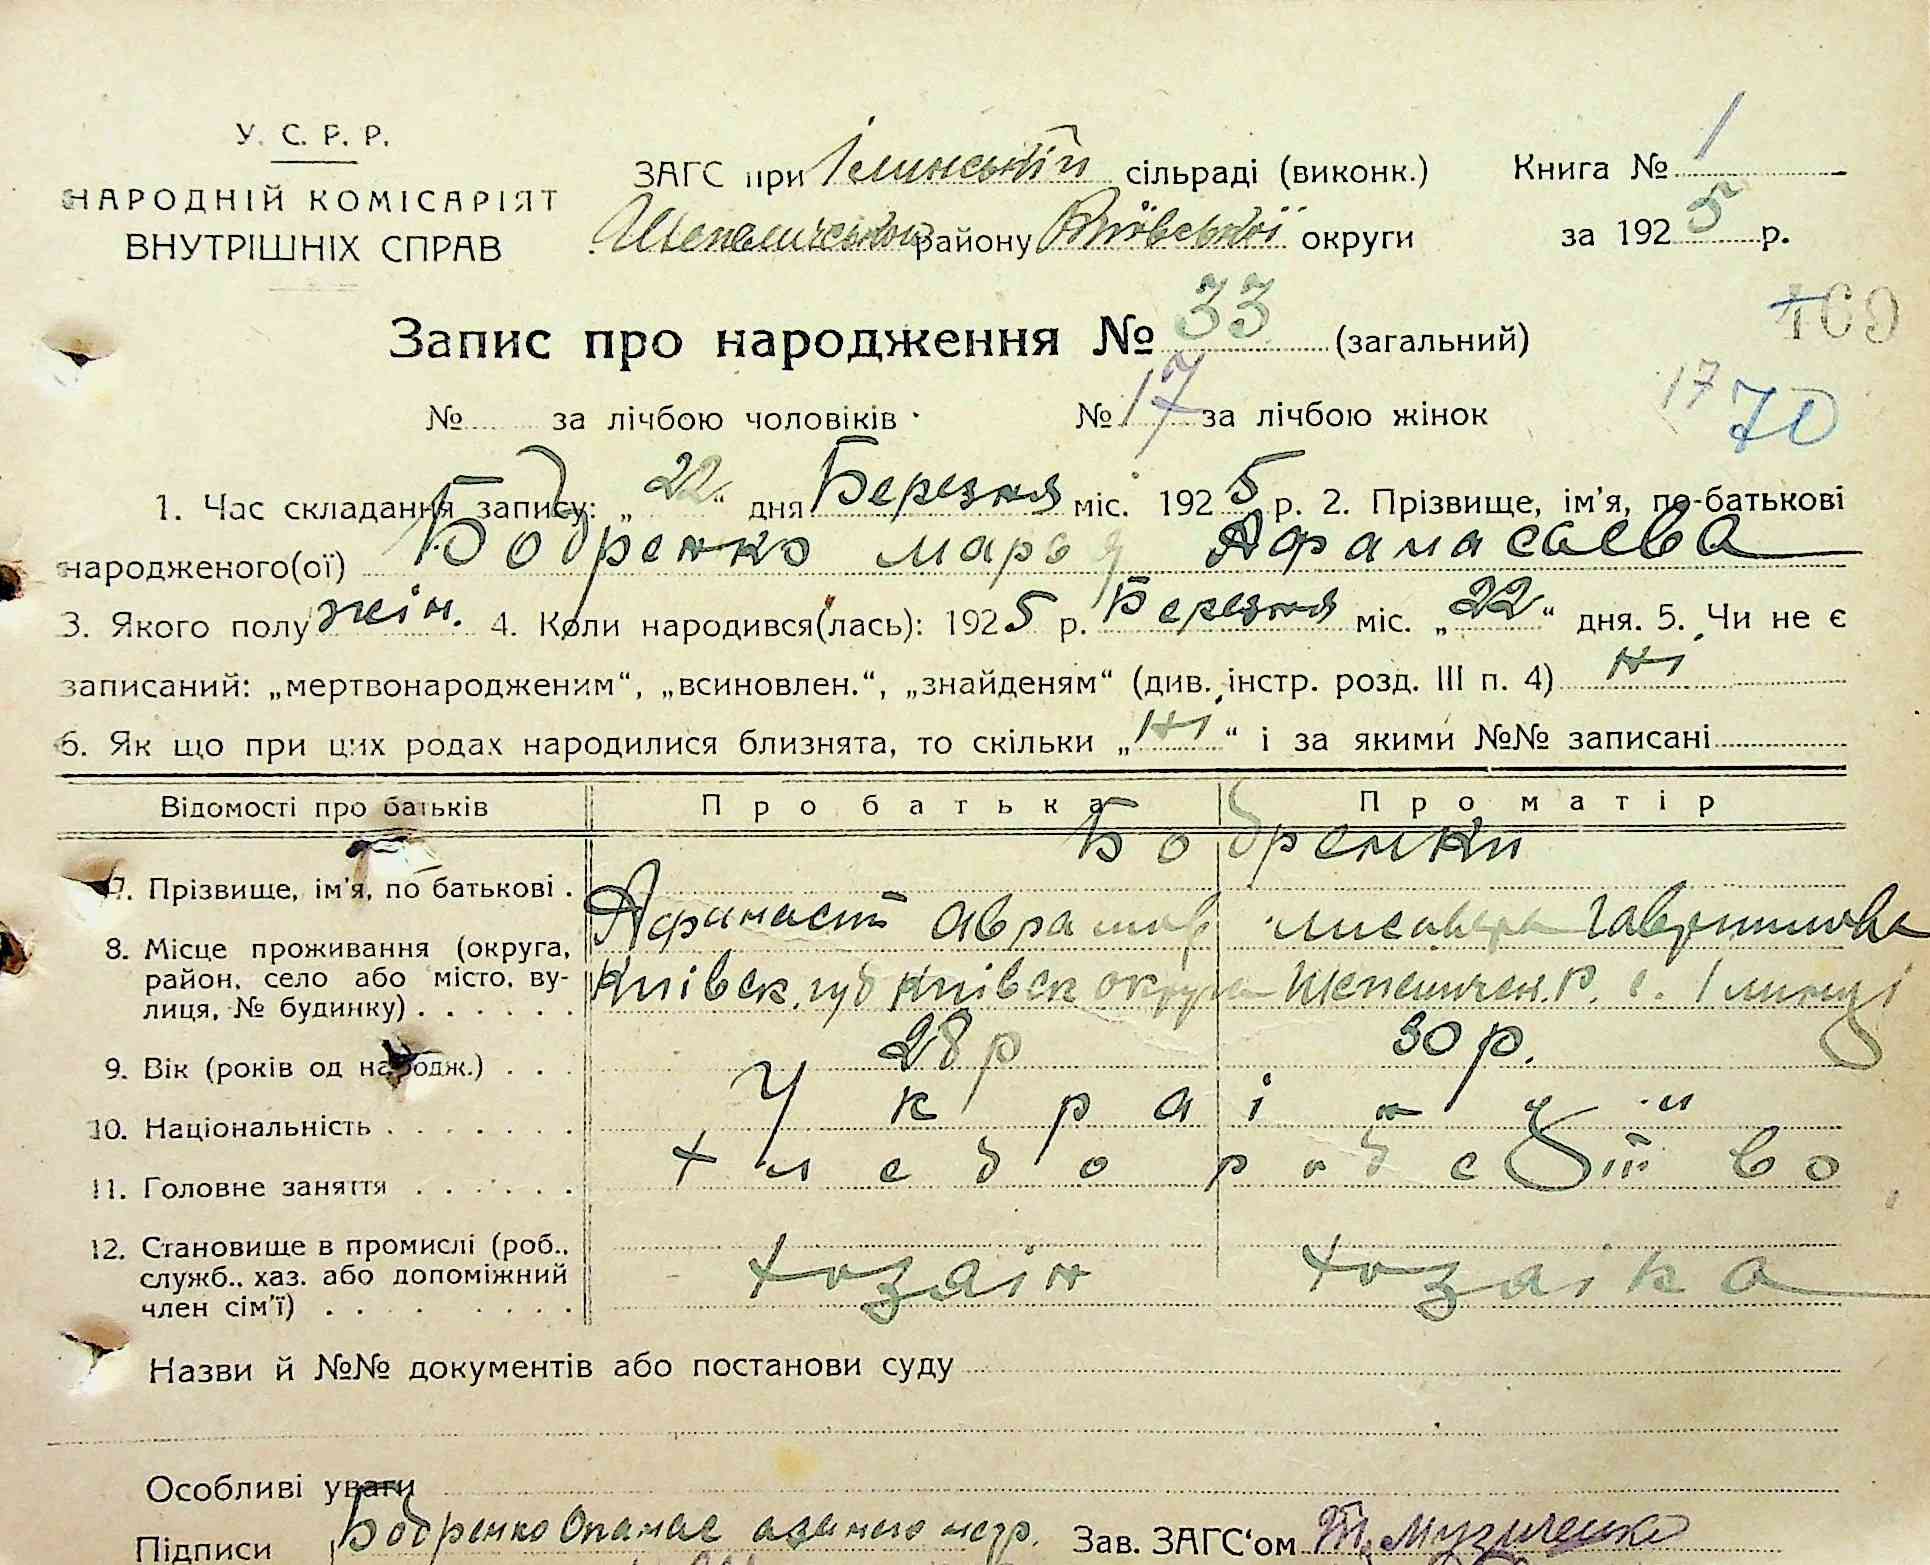 У. С. Р. Р.
НАРОДНІЙ КОМІСАРІЯТ
ВНУТРІШНІХ СПРАВ
ЗАГС при Ілинській сільраді (виконк.)
Шепелической району Київської округи
Книга № 1
за 1925 р.
Запис про народження № 33 (загальний)
169
№ за лічбою чоловіків · № 17 за лічбою жінок
17 70
1. Час складання запису: „22“ дня Березня міс. 1925 р. 2. Прізвище, ім'я, по-батькові
народженого(ої) Бодренко Марья Афанасаева
3. Якого полу жін. 4. Коли народився(лась): 1925 р. Березня міс. „22“ дня. 5. Чи не є
записаний: „мертвонародженим“, „всиновлен.“, „знайденям“ (див. інстр. розд. III п. 4) ні
6. Як що при цих родах народилися близнята, то скільки „ні“ і за якими №№ записані
Відомості про батьків Про батька Про матір
Бодренки
7. Прізвище, ім'я, по батькові . Афанасій Аврамов Лисавера Гаврилова
8. Місце проживання (округа,
район, село або місто, ву-
лиця, № будинку) . . . . . . Київск. губ Київск округа Шепеличск. р. с. Ілинці
9. Вік (років од народж.) . . . 28 р 30 р.
10. Національність . . . . . . . Українці
11. Головне заняття . . . . . . Хлеборобество
12. Становище в промислі (роб.,
служб., хаз. або допоміжний
член сім'ї) . . . . . . . . . Хозаін Хозаіка
Назви й №№ документів або постанови суду
Особливі уваги
Підписи Бодренко Опанас негр. Зав. ЗАГС'ом Музиченко